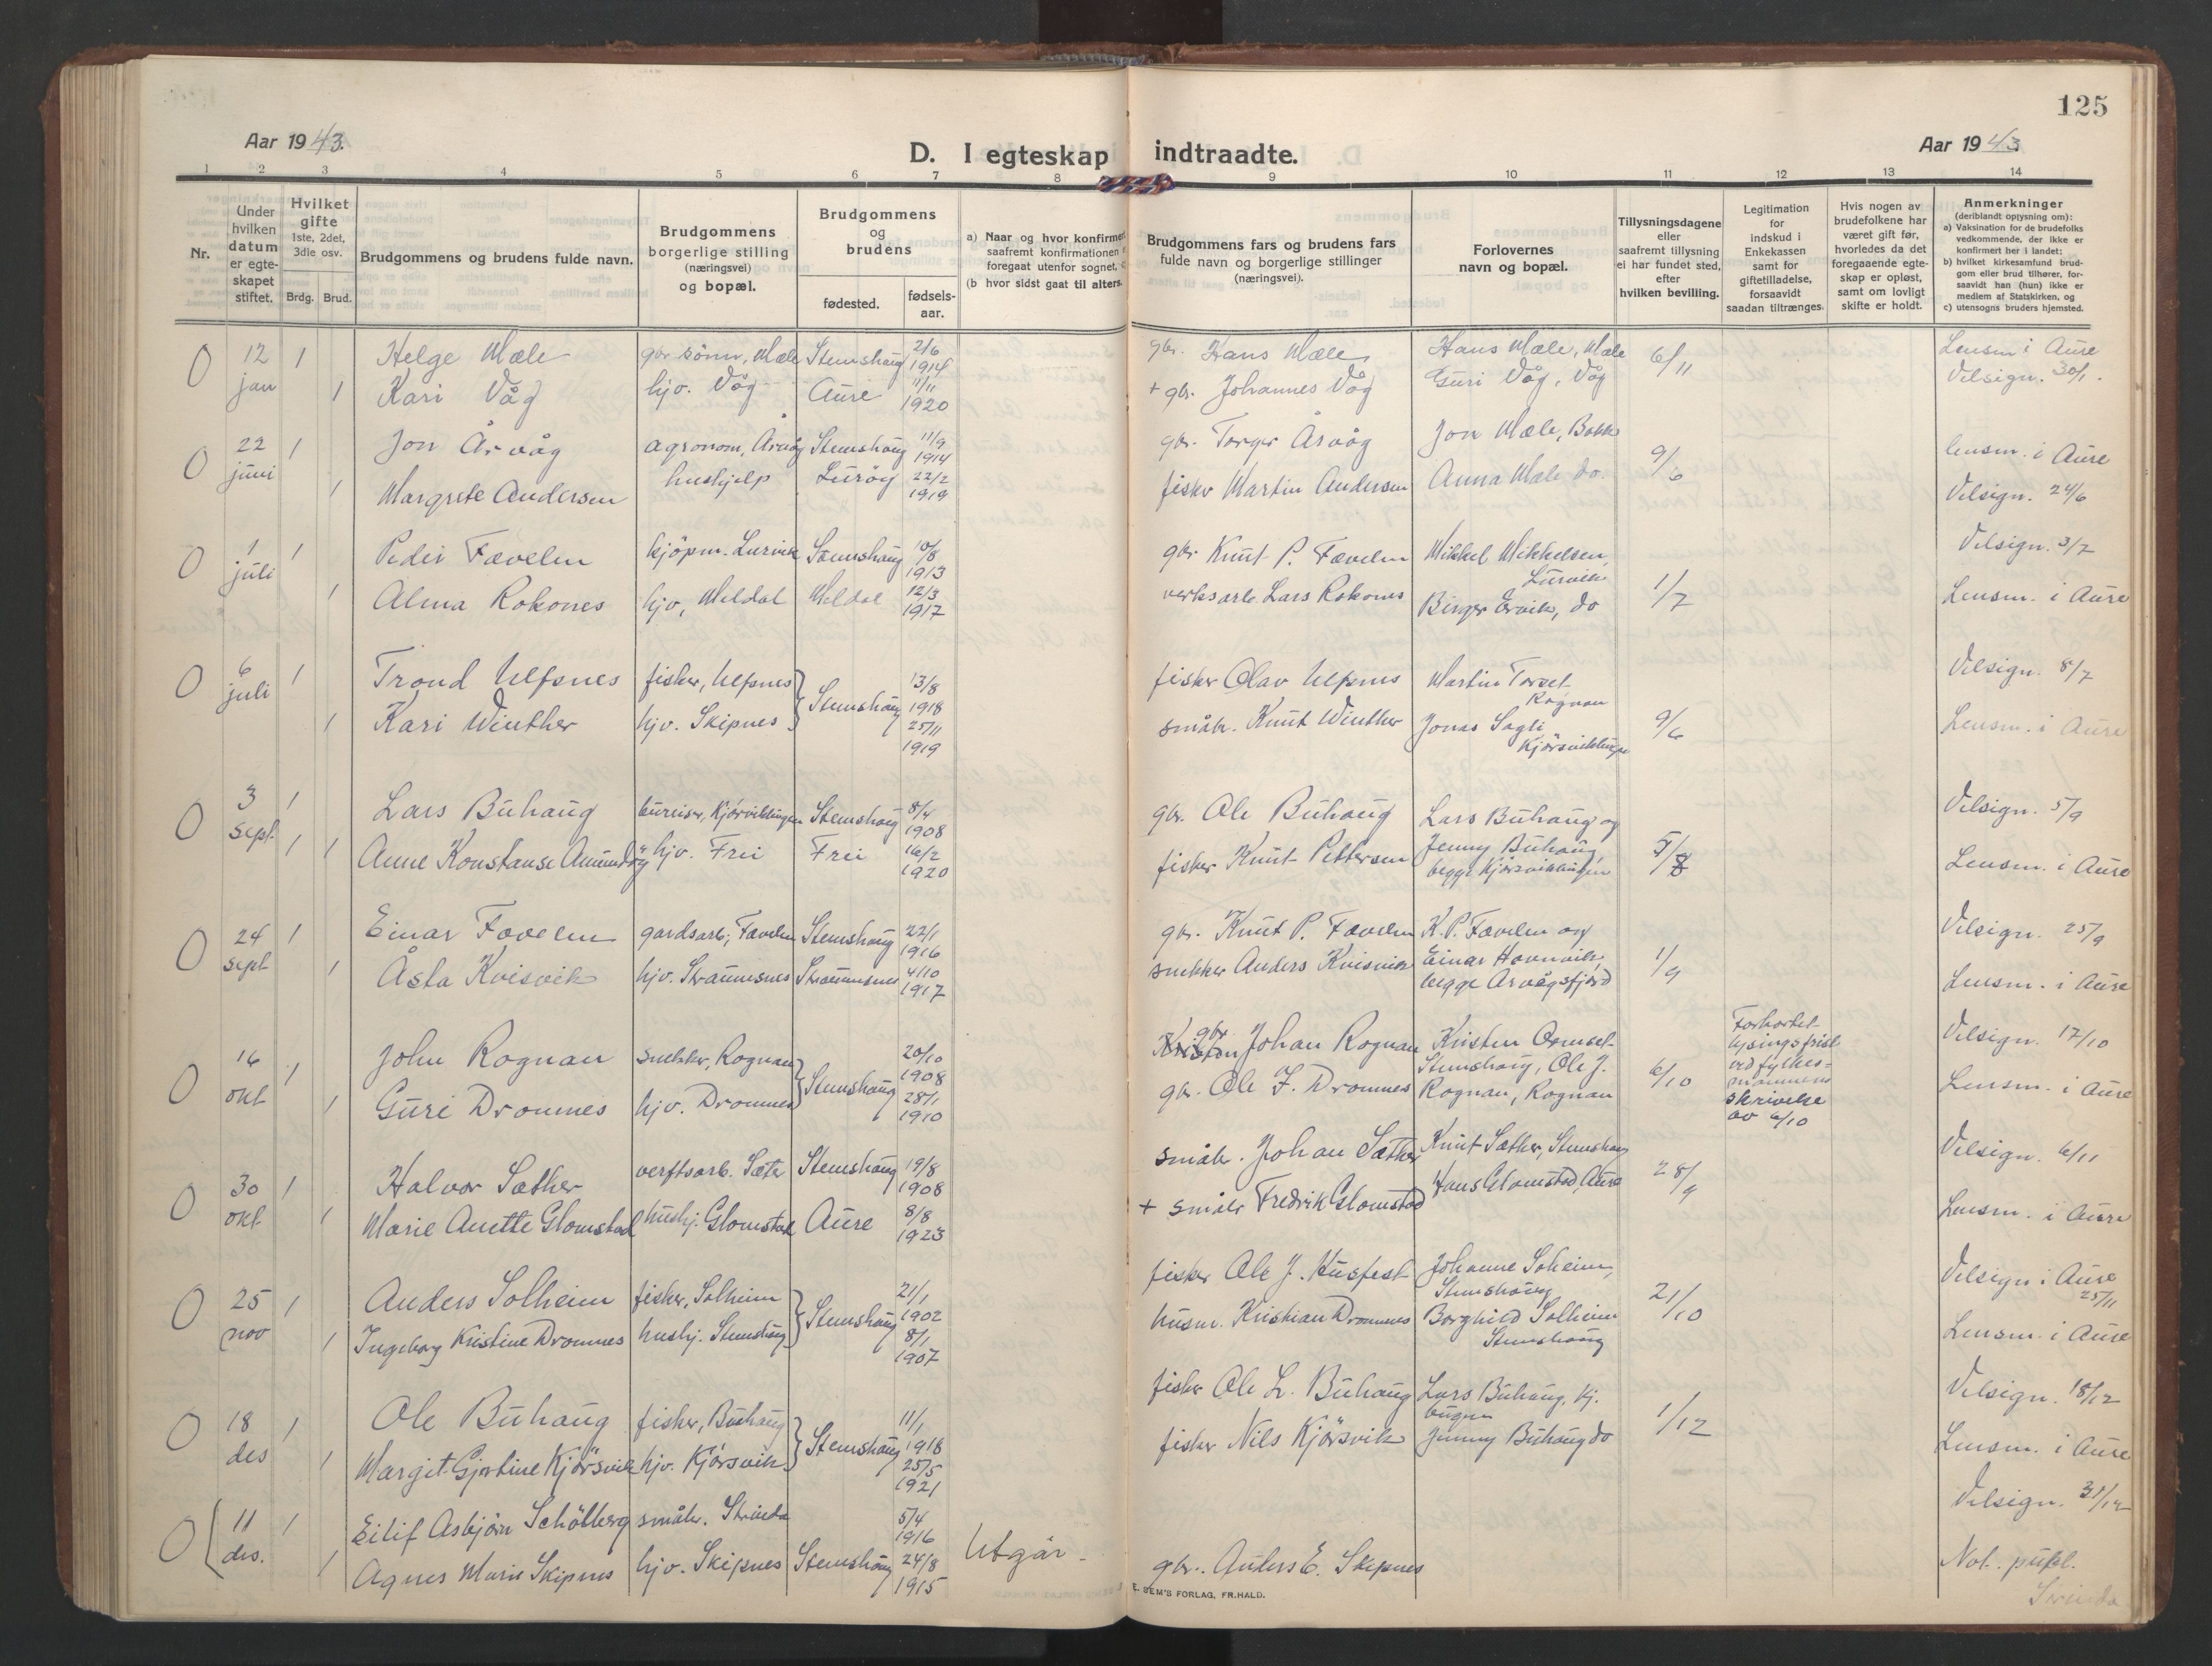 125
Aar 1943.
D. I egteskap indtraadte.
Aar 1943
1 2 3 4 5 6 7 8 9 10 11 12 13 14
Nr.
Under hvilken datum er egteskapet stiftet.
Hvilket gifte
1ste, 2det, 3die osv.
Brdg. Brud.
Brudgommens og brudens fulde navn.
Brudgommens borgerlige stilling (næringsvei) og bopæl.
Brudgommens og brudens
fødested.
fødsels-aar.
a) Naar og hvor konfirmert
saafremt konfirmationen
foregaat utenfor sognet,
(b hvor sidst gaat til alters.
Brudgommens fars og brudens fars
fulde navn og borgerlige stillinger
(næringsvei).
Forlovernes
navn og bopæl.
Tillysningsdagene
eller
saafremt tillysning
ei har fundet sted,
efter
hvilken bevilling.
Legitimation
for
indskud i
Enkekassen
samt for
giftetilladelse,
forsaavidt
saadan tiltrænges.
Hvis nogen av
brudefolkene har
været gift før,
hvorledes da det
foregaaende egte-
skap er opløst,
samt om lovligt
skifte er holdt.
Anmerkninger
(deriblandt oplysning om):
a) Vaksination for de brudefolks
vedkommende, der ikke er
konfirmert her i landet;
b) hvilket kirkesamfund brud-
gom eller brud tilhører, for-
saavidt han (hun) ikke er
medlem af Statskirken, og
c) utensogns bruders hjemsted.
0 12 jan 1 Helge Mæle gbr sönn, Mæle Stemshaug 2/6 1914 gbr. Hans Mæle Hans Mæle, Mæle 6/11 Lensm i Aure
1 Kari Våg hjv. Våg Aure 11/11 1920 + gbr. Johannes Våg Guri Våg, Våg Velsign. 30/1.
0 22 juni 1 Jon Årvåg agronom, Årvåg Stemshaug 11/9 1914 gbr. Torger Årvåg Jon Mæle, Bakk 9/6 lensm. i Aure
1 Margrete Andersen hushjelp Luröy 22/2 1919 fisker Martin Andersen Anna Mæle do. Velsign. 24/6
0 1 juli 1 Peder Fævelen kjöpm. Lurvik Stemshaug 10/8 1913 gbr Knut P. Fævelen Mikkel Mikkelsen, Lurvik 1/7 Velsign. 3/7
1 Alma Rokones hjv, Meldal Meldal 12/3 1917 verksarb. Lars Rokones Birger Ervik, do Lensm. i Aure
0 6 juli 1 Trond Ulfsnes fisker, Ulfsnes Stemshaug 13/8 1918 fisker Olav Ulfsnes Martin Torset Rognan 9/6 Velsign. 8/7
1 Kari Winther hjv. Skipnes 25/11 1919 småbr. Knut Winther Jonas Sagli Lensm. i Aure
0 3 sept. 1 Lars Buhaug bureiser, Kjörviklingen Stemshaug 8/4 1908 gbr. Ole Buhaug Lars Buhaug og 5/8 Velsign. 5/9
1 1 Anne Konstanse Amundöy hjv. Frei Frei 16/2 1920 fisker Knut Pettersen Jenny Buhaug, begge Lensm. i Aure
0 24 sept 1 Einar Fævelen gardsarb, Fævelen Stemshaug 22/1 1916 gbr. Knut P. Fævelen K. P. Fævelen og 1/9 Velsign. 25/9
1 Åsta Kvisvik hjv. Straumsnes Straumsnes 4/10 1917 snekker Anders Kvisvik Einar Havnvik, begge Arvågsfjord Lensm. i Aure
0 16 okt 1 John Rognan snekker, Rognan Stemshaug 20/10 1908 gbr Johan Rognan Kristen Ormset Stemshaug, Ole J. 6/10 Forkortet lysingsfrist ved fylkesmannens skrivelse av 6/10 Velsign. 17/10
1 Guri Dromnes hjv. Dromnes 28/1 1910 gbr. Ole J. Dromnes Rognan, Rognan Lensm. i Aure
0 30 okt 1 Halvor Sæther verftsarb. Sæter Stemshaug 19/8 1908 småbr. Johan Sæther Knut Sæther, Stemshaug 28/9 Velsign. 6/11
1 Marie Anette Glomstad hushj. Glomstad Aure 8/8 1923 + småbr Fredrik Glomstad Hans Glomstad, Aure Lensm. i Aure
0 25 nov 1 Anders Solheim fisker, Solheim Stemshaug 21/1 1902 fisker Ole J. Husfest Johanne Solheim, Stemshaug 21/10 Velsign i Aure 25/11
1 Ingeborg Kristine Dromnes hushj. Stemshaug 8/1 1907 husm. Kristian Dromnes Borghild Solheim Stemshaug Lensm. i Aure
0 18 des 1 Ole Buhaug fisker, Buhaug Stemshaug 11/1 1918 fisker Ole L. Buhaug Lars Buhaug, Kj. bugen 1/12 Velsign. 18/12
1 Margit Gjertine Kjörsvik hjv. Kjörsvik 25/5 1921 fisker Nils Kjörsvik Jenny Buhaug do Lensm. i Aure
0 11 des. 1 Eilif Asbjörn Schölberg småbr. Strinda 5/4 1916 Velsign. 31/12
1 Agnes Marie Skipnes hjv. Skipnes Stemshaug 24/8 1915 Utgår - gbr. Anders E. Skipnes Not. publ. Strinda
E. SEM'S FORLAG, FR.HALD.